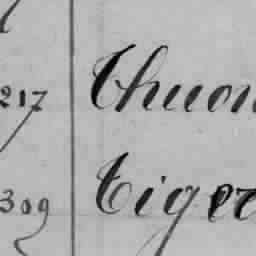 217 Thuon
309 Tiger